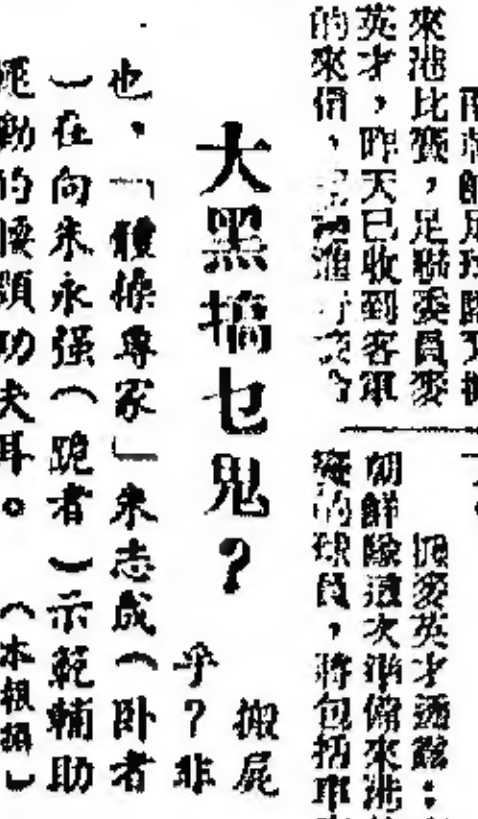 來港比賽，足聯委員麥
英才，昨天已收到客軍
的來信，
據麥英才透露：
朝鮮隊這次準備來港
的球員，將包括軍
大黑搞乜鬼？
搬屍
乎？非
也，「體操專家」朱志成（卧者
）在向朱永强（跪者）示範輔助
運動的腰頸功夫耳。（本報攝）